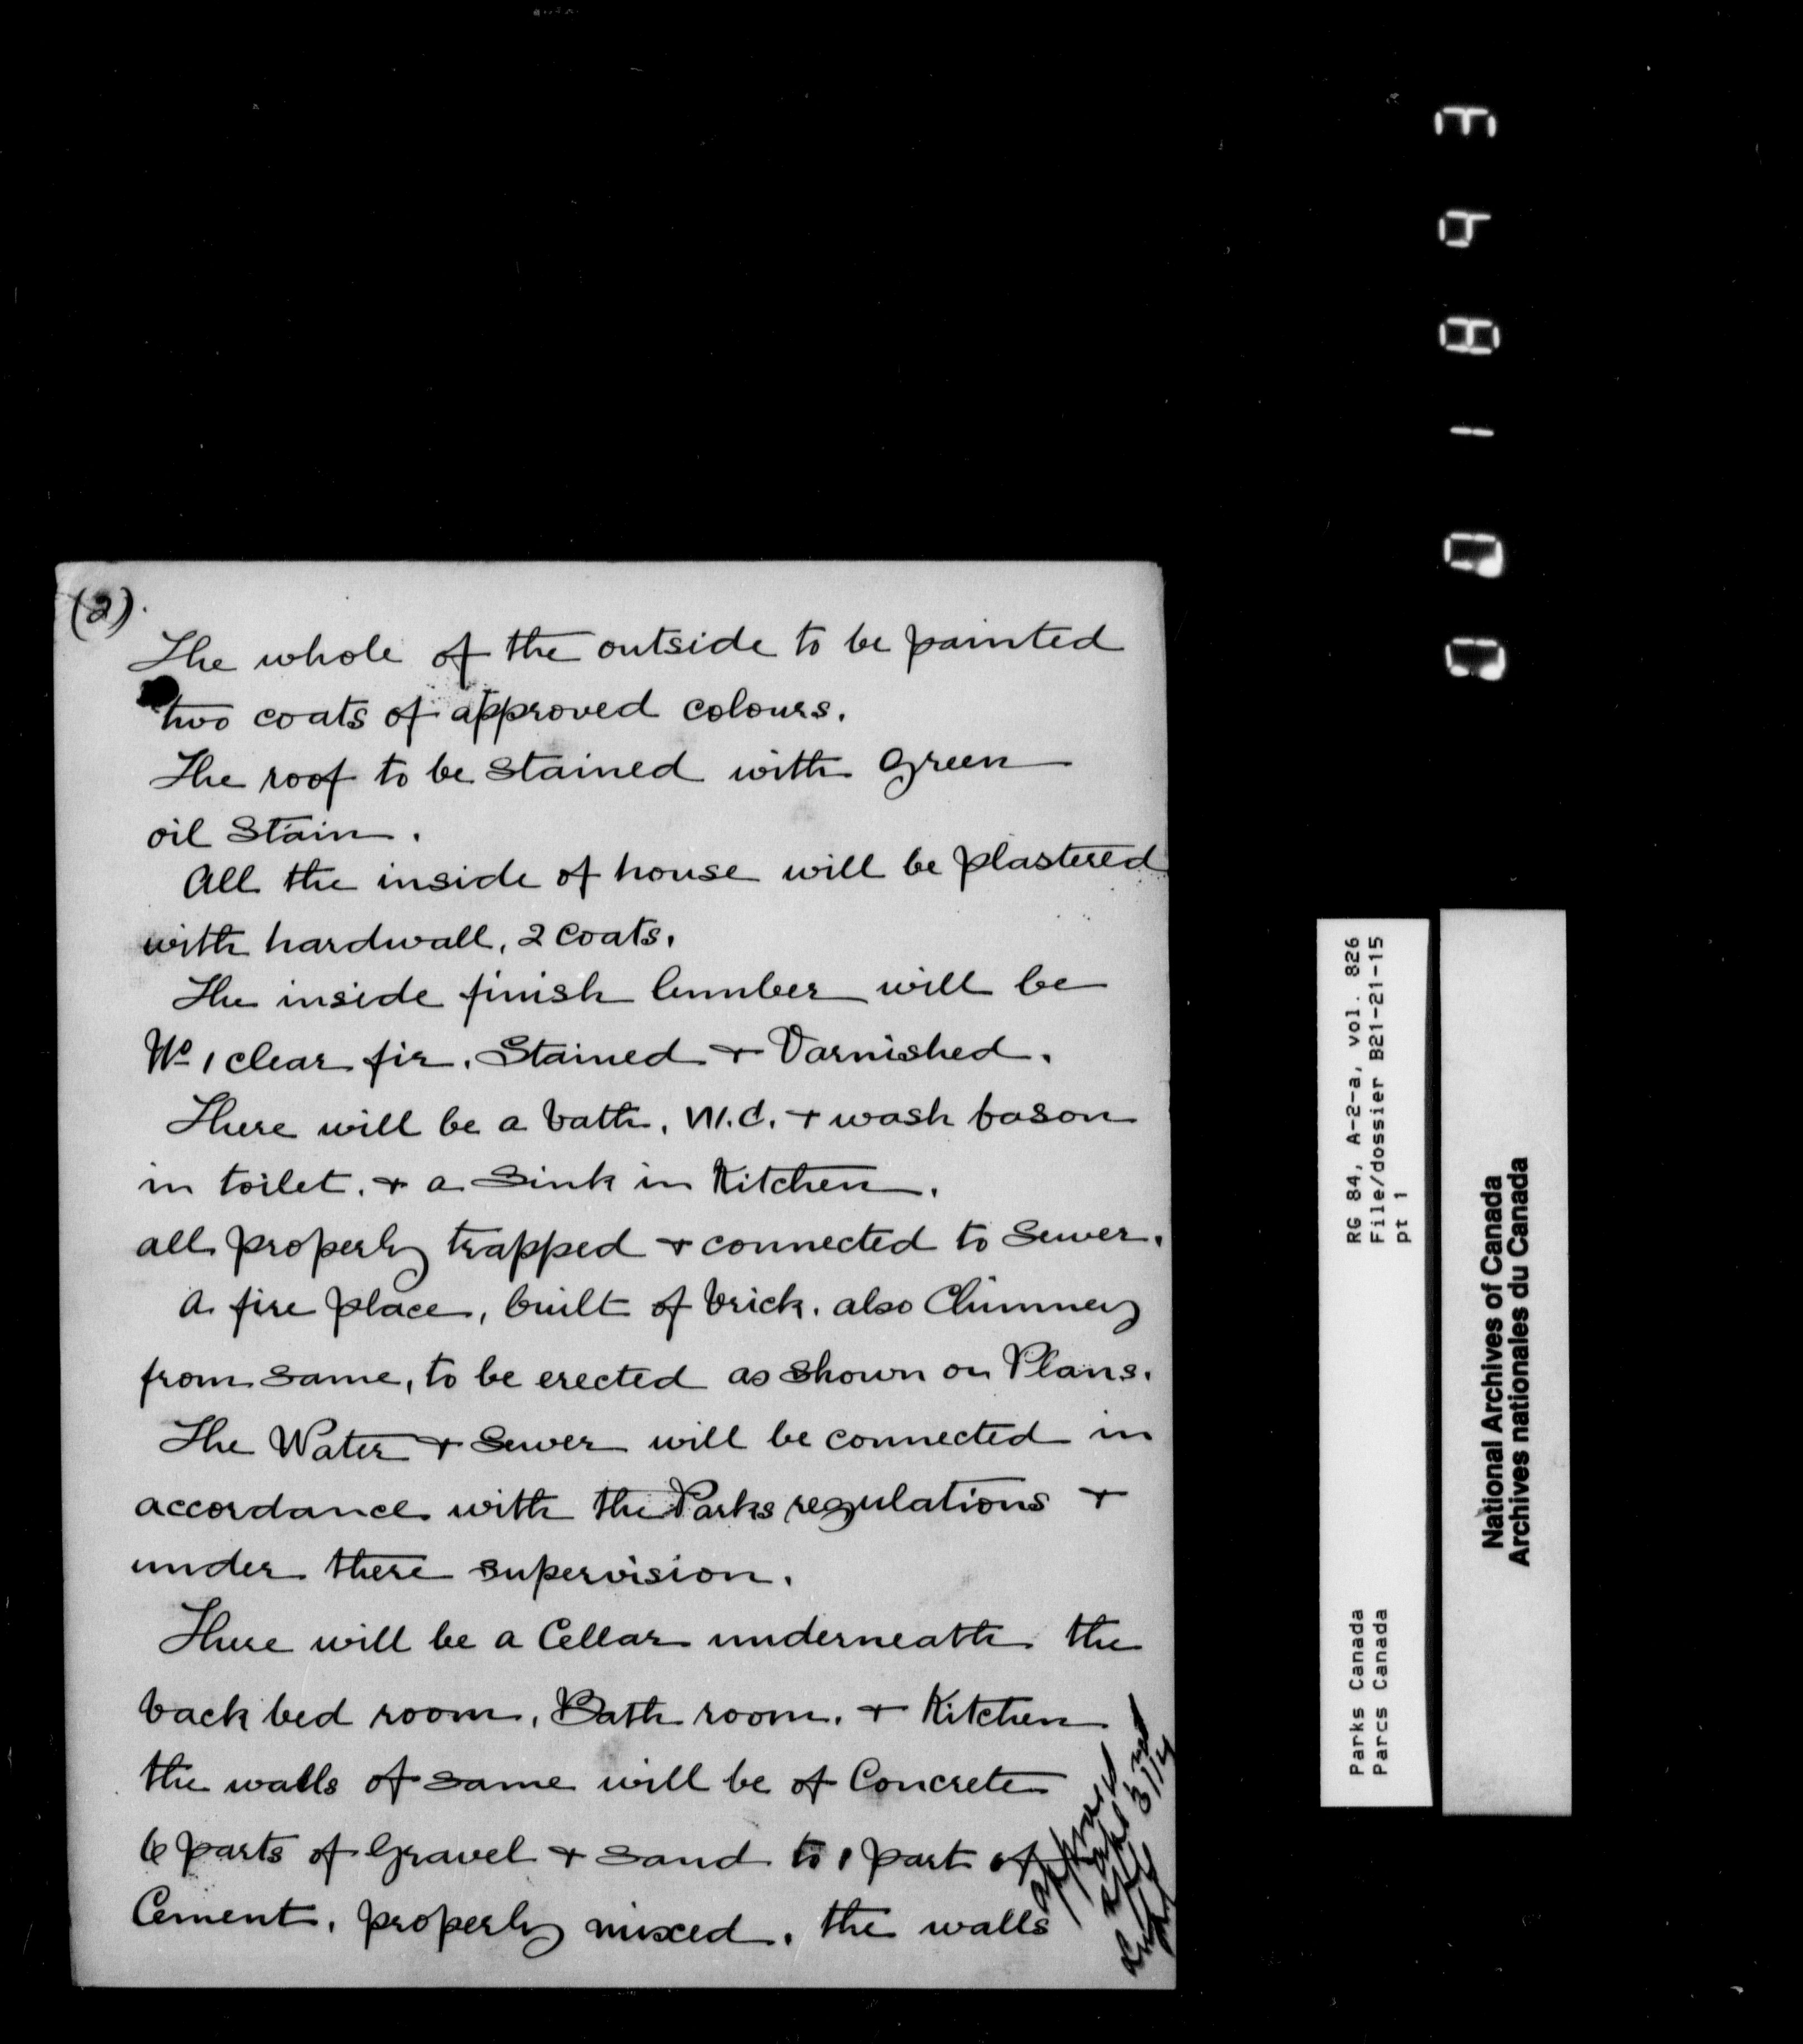 (2).
The whole of the outside to be painted
two coats of approved colours.
The roof to be stained with Green
oil Stain.
All the inside of house will be plastered
with hardwall, 2 Coats.
The inside finish lumber will be
No 1 clear fir. Stained + Varnished.
There will be a bath, W.C. + wash bason
in toilet. + a Sink in Kitchen.
all properly trapped + connected to Sewer.
A fire place, built of brick. also Chimney
from same, to be erected as shown on Plans.
The Water + Sewer will be connected in
accordance with the Parks regulations +
under there supervision.
There will be a Cellar underneath the
back bed room, Bath room. + Kitchen
the walls of same will be of Concrete
6 parts of Gravel + Sand to 1 part of
Cement, properly mixed. the walls
approved
RG 84, A-2-a, vol. 826
File/dossier B21-21-15
pt 1
Parks Canada
Parcs Canada
National Archives of Canada
Archives nationales du Canada